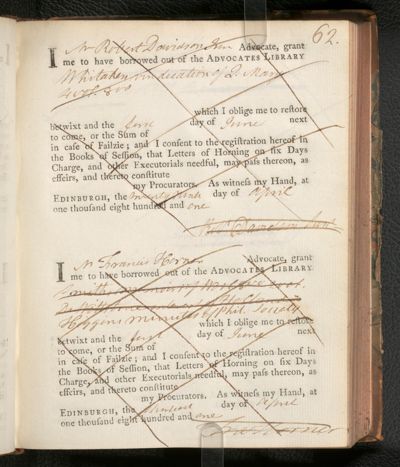 62.
I Mr Robert Davidson Jun Advocate, grant
me to have borrowed out of the ADVOCATES LIBRARY
Whitaker vindication of Q. Mary
which I oblige me to restore
betwixt and the day of June next
to come, or the Sum of
in case of Failzie; and I consent to the registration hereof in
the Books of Session, that Letters of Horning on six Days
Charge, and other Executorials needful, may pass thereon, as
effeirs, and thereto constitute
my Procurators. As witness my Hand, at
EDINBURGH, the day of April
one thousand eight hundred and one
I Mr Francis Horner Advocate, grant
me to have borrowed out of the ADVOCATES LIBRARY
which I oblige me to restore
betwixt and the day of June next
to come, or the Sum of
in case of Failzie; and I consent to the registration hereof in
the Books of Session, that Letters of Horning on six Days
Charge, and other Executorials needful, may pass thereon, as
effeirs, and thereto constitute
my Procurators. As witness my Hand, at
EDINBURGH, the day of April
one thousand eight hundred and one
Horner